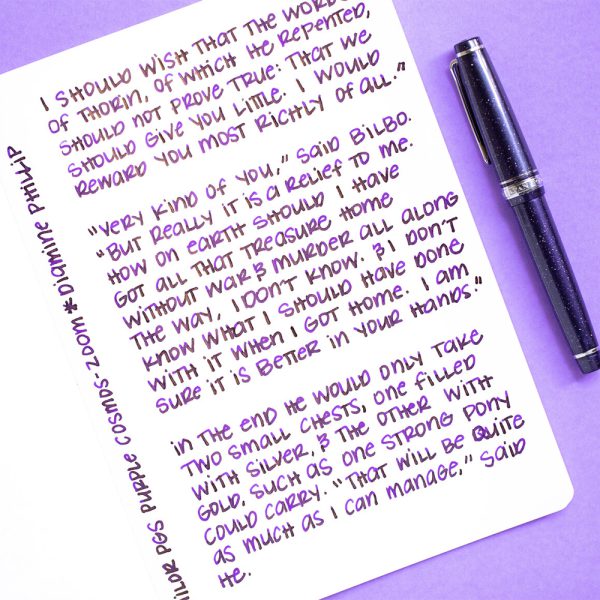 I SHOULD WISH THAT THE WORDS
OF THORIN, OF WHICH HE REPENTED,
SHOULD NOT PROVE TRUE: THAT WE
SHOULD GIVE YOU LITTLE. I WOULD
REWARD YOU MOST RICHLY OF ALL."
"VERY KIND OF YOU," SAID BILBO.
"BUT REALLY IT IS A RELIEF TO ME.
HOW ON EARTH SHOULD I HAVE
GOT ALL THAT TREASURE HOME
WITHOUT WAR & MURDER ALL ALONG
THE WAY, I DON'T KNOW. & I DON'T
KNOW WHAT I SHOULD HAVE DONE
WITH IT WHEN I GOT HOME. I AM
SURE IT IS BETTER IN YOUR HANDS."
IN THE END HE WOULD ONLY TAKE
TWO SMALL CHESTS, ONE FILLED
WITH SILVER, & THE OTHER WITH
GOLD, SUCH AS ONE STRONG PONY
COULD CARRY. "THAT WILL BE QUITE
AS MUCH AS I CAN MANAGE," SAID
HE.
PGS PURPLE COSMOS - ZOOM * DIAMINE PHILLIP